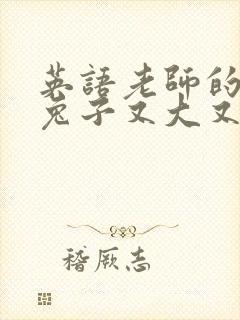 英語老師的
兔子又大又
稽厥志